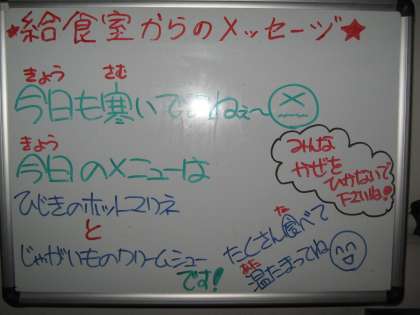 ★給食室からのメッセージ★
きょう さむ
今日も寒いですねぇ～
きょう
今日のメニューは
ひじきのホットマリネ
と
じゃがいものクリームシチュー
です!
みんな
かぜを
ひかないで
下さいね!
た
たくさん食べて
あたた
温たまってね